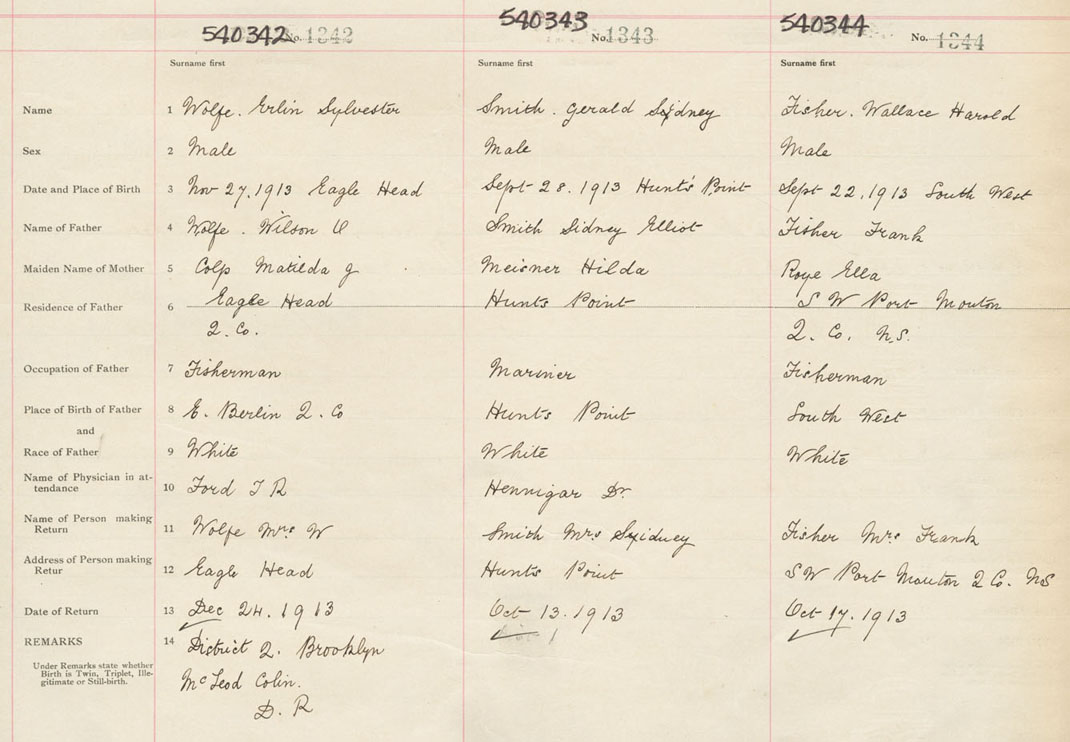 540342 No. 1342 540343 No. 1343 540344 No. 1344
Surname first Surname first Surname first
Name 1 Wolfe. Erlin Sylvester Smith. Gerald Sidney Fisher. Wallace Harold
Sex 2 Male Male Male
Date and Place of Birth 3 Nov 27, 1913 Eagle Head Sept 28. 1913 Hunt's Point Sept 22, 1913 South West
Name of Father 4 Wolfe. Wilson U Smith Sidney Elliot Fisher Frank
Maiden Name of Mother 5 Colp Matilda J Meisner Hilda Roye Ella
Residence of Father 6 Eagle Head Hunts Point S W Port Mouton
Q. Co. Q. Co. N.S.
Occupation of Father 7 Fisherman Mariner Fisherman
Place of Birth of Father 8 E. Berlin Q. Co Hunts Point South West
and
Race of Father 9 White White White
Name of Physician in at-
tendance 10 Ford T R Hennigar Dr.
Name of Person making
Return 11 Wolfe Mrs W Smith Mrs Sidney Fisher Mrs Frank
Address of Person making
Retur 12 Eagle Head Hunts Point S W Port Mouton Q Co. NS
Date of Return 13 Dec 24. 1913 Oct 13. 1913 Oct 17. 1913
REMARKS 14 District 2. Brooklyn
Under Remarks state whether
Birth is Twin, Triplet, Ille-
gitimate or Still-birth.
McLeod Colin.
D. R